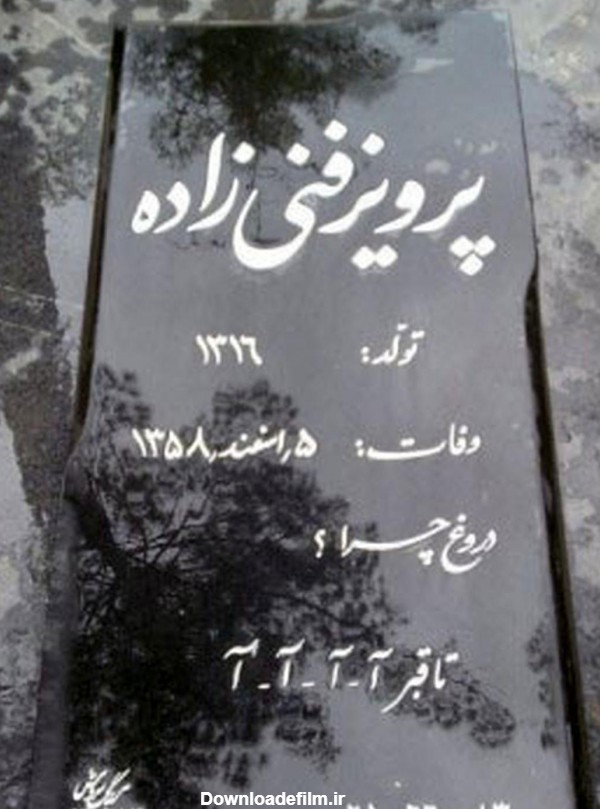 پرویز فنی زاده
تولد: ۱۳۱۶
وفات: ۵ اسفند ۱۳۵۸
دروغ چرا ؟
تا قبر آ - آ - آ - آ
Downloadefilm.ir